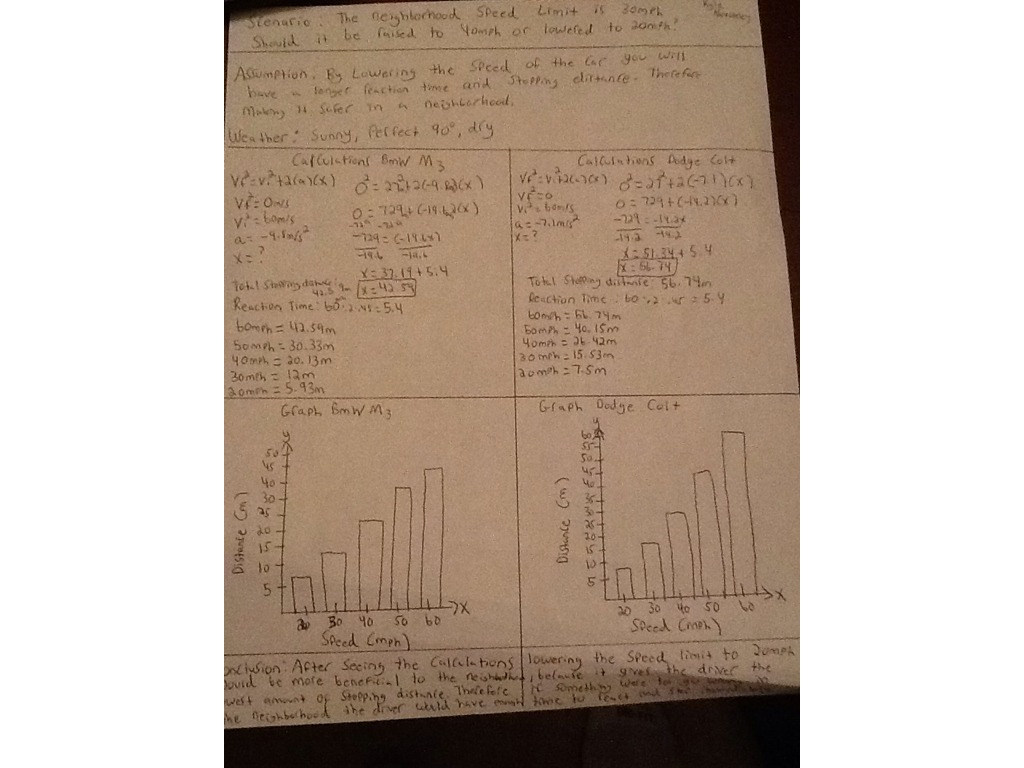 Scenario: The neighborhood Speed Limit is 30mph
Should it be raised to 40mph or lowered to 20mph?
Assumption: By Lowering the Speed of the Car you will
have a longer reaction time and Stopping distance. Therefore
Making it Safer in a neighborhood.
Weather: Sunny, Perfect 90°, dry
Calculations BMW M3
Vf²=Vi²+2(a)(x)
Vf²=0m/s
Vi²=60m/s
a= -9.8m/s²
x=?
0=729+(-19.6)(x)
-729 -729
-729=(-19.6x)
-19.6 -19.6
x=37.19+5.4
x=42.59
Total Stopping distance:
42.59m
Reaction Time: 60·.2·.45=5.4
60mph=42.59m
50mph=30.33m
40mph=20.13m
30mph=12m
20mph=5.93m
Calculations Dodge Colt
Vf²=Vi²+2(a)(x)
Vf²=0
Vi²=60m/s
a=-7.1m/s²
x=?
0²=27²+2(-7.1)(x)
0=729+(-14.2)(x)
-729=-14.2x
-14.2 -14.2
x=51.34+5.4
x=56.74
Total Stopping distance: 56.74m
Reaction Time: 60·.2·.45=5.4
60mph=56.74m
50mph=40.15m
40mph=26.42m
30mph=15.53m
20mph=7.5m
Graph BMW M3
y
50
45
40
30
25
20
15
10
5
Distance (m)
20 30 40 50 60 x
Speed (mph)
Graph Dodge Colt
y
60
55
50
45
40
35
30
25
20
15
10
5
Distance (m)
20 30 40 50 60 x
Speed (mph)
onclusion: After Seeing the Calculations lowering the Speed limit to 20mph
ould be more beneficial to the neighborhood, because it gives the driver the
west amount of Stopping distance. Therefore if something were to go
the neighborhood the driver would have enough time to react and